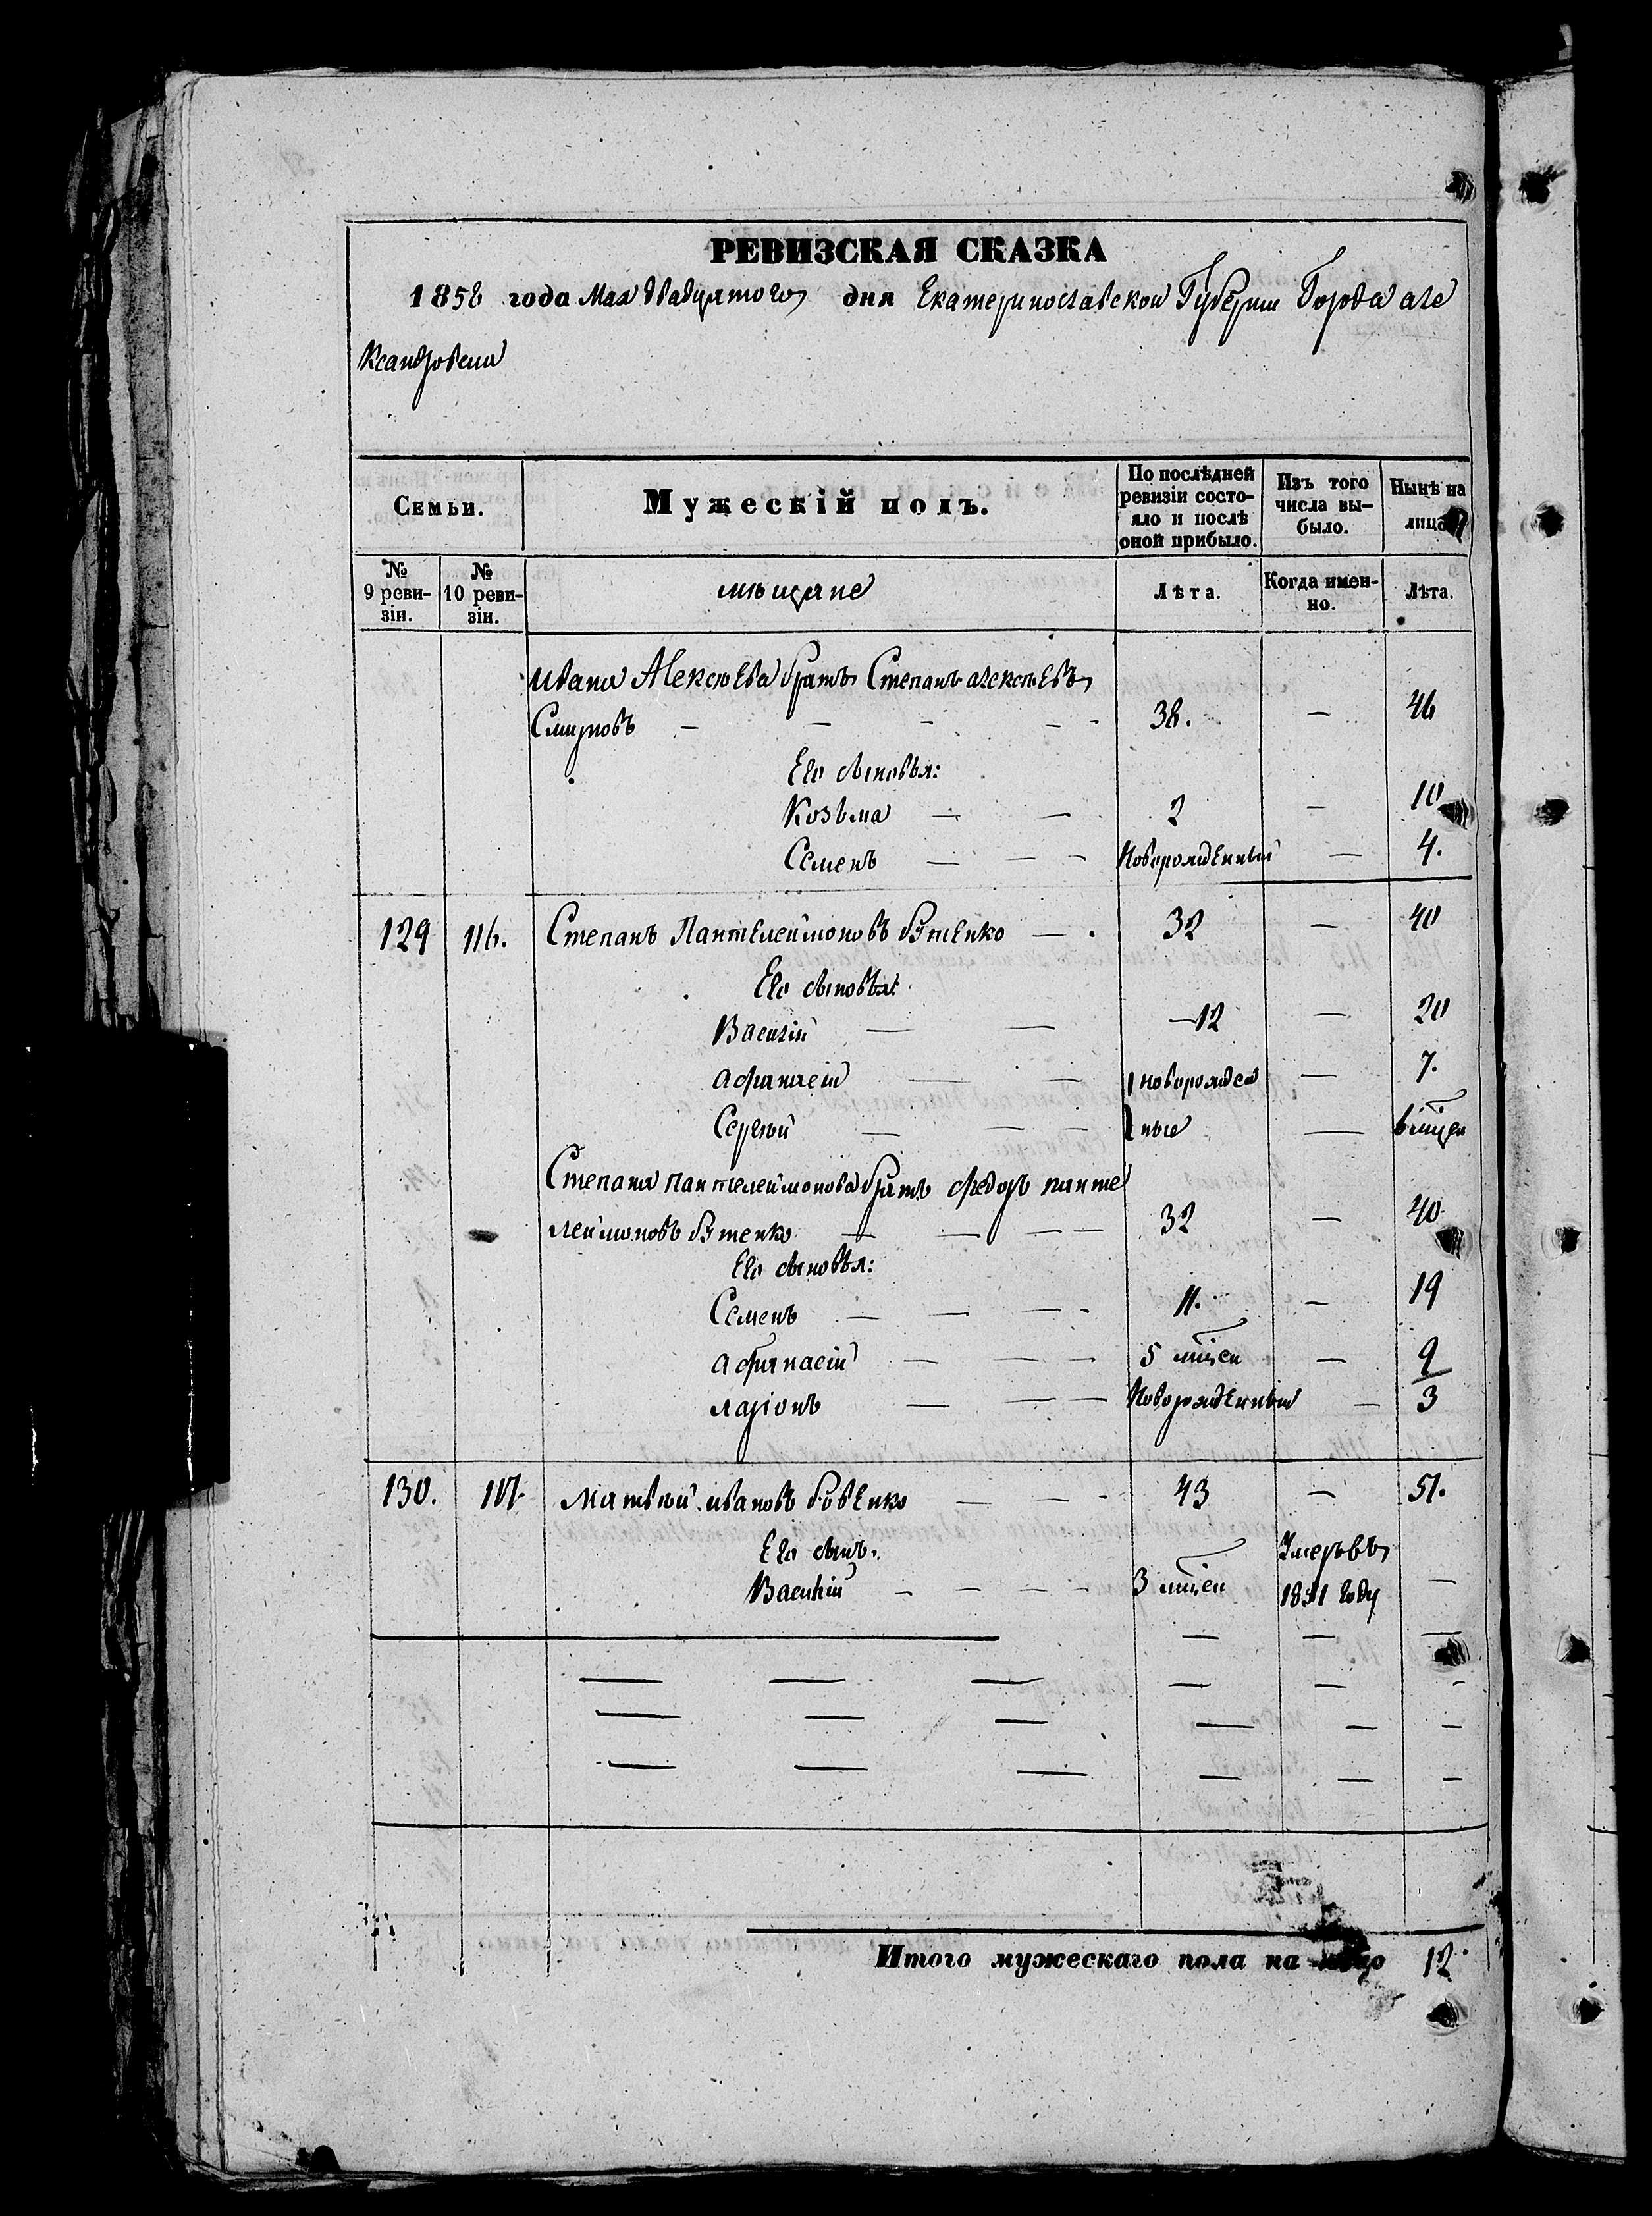 РЕВИЗСКАЯ СКАЗКА
1858 года Мая двадцятого дня Екатеринославской Губернии Города але
ксандровска
Семьи. Мужескій полъ. По послѣдней ревизіи состо- яло и послѣ оной прибыло. Изъ того числа вы- было. Нынѣ на лицо
№ 9 реви- зіи. № 10 реви- зіи. мѣщяне Лѣта. Когда имен- но. Лѣта.
ивана Алексѣева братъ Степанъ алексѣевъ
Смирновъ — — — — 38. — 46
Его сыновья:
Козьма — — 2 — 10
Семенъ — — — Новорожденный — 4.
129 116. Степанъ Пантелеймоновъ Бутенко — 32 — 40
Его сыновья:
Василій — — 12 — 20
афанасій — — новорожден — 7.
Сергѣй — — — ные —
Степана пантелеймонова братъ федоръ панте
леймоновъ бутенко — — — — 32 — 40
Его сыновья:
Семенъ — — — 11. — 19
афанасій — — — 5 мѣсяц — 9
ларіонъ — — — Новорожденный — 3
130. 117 Матвѣй ивановъ бовенко — — 43 — 51.
Его сынъ: Умеръ въ
Василій — — — — 3 мѣсяц 1851 году —
Итого мужескаго пола на лицо 12